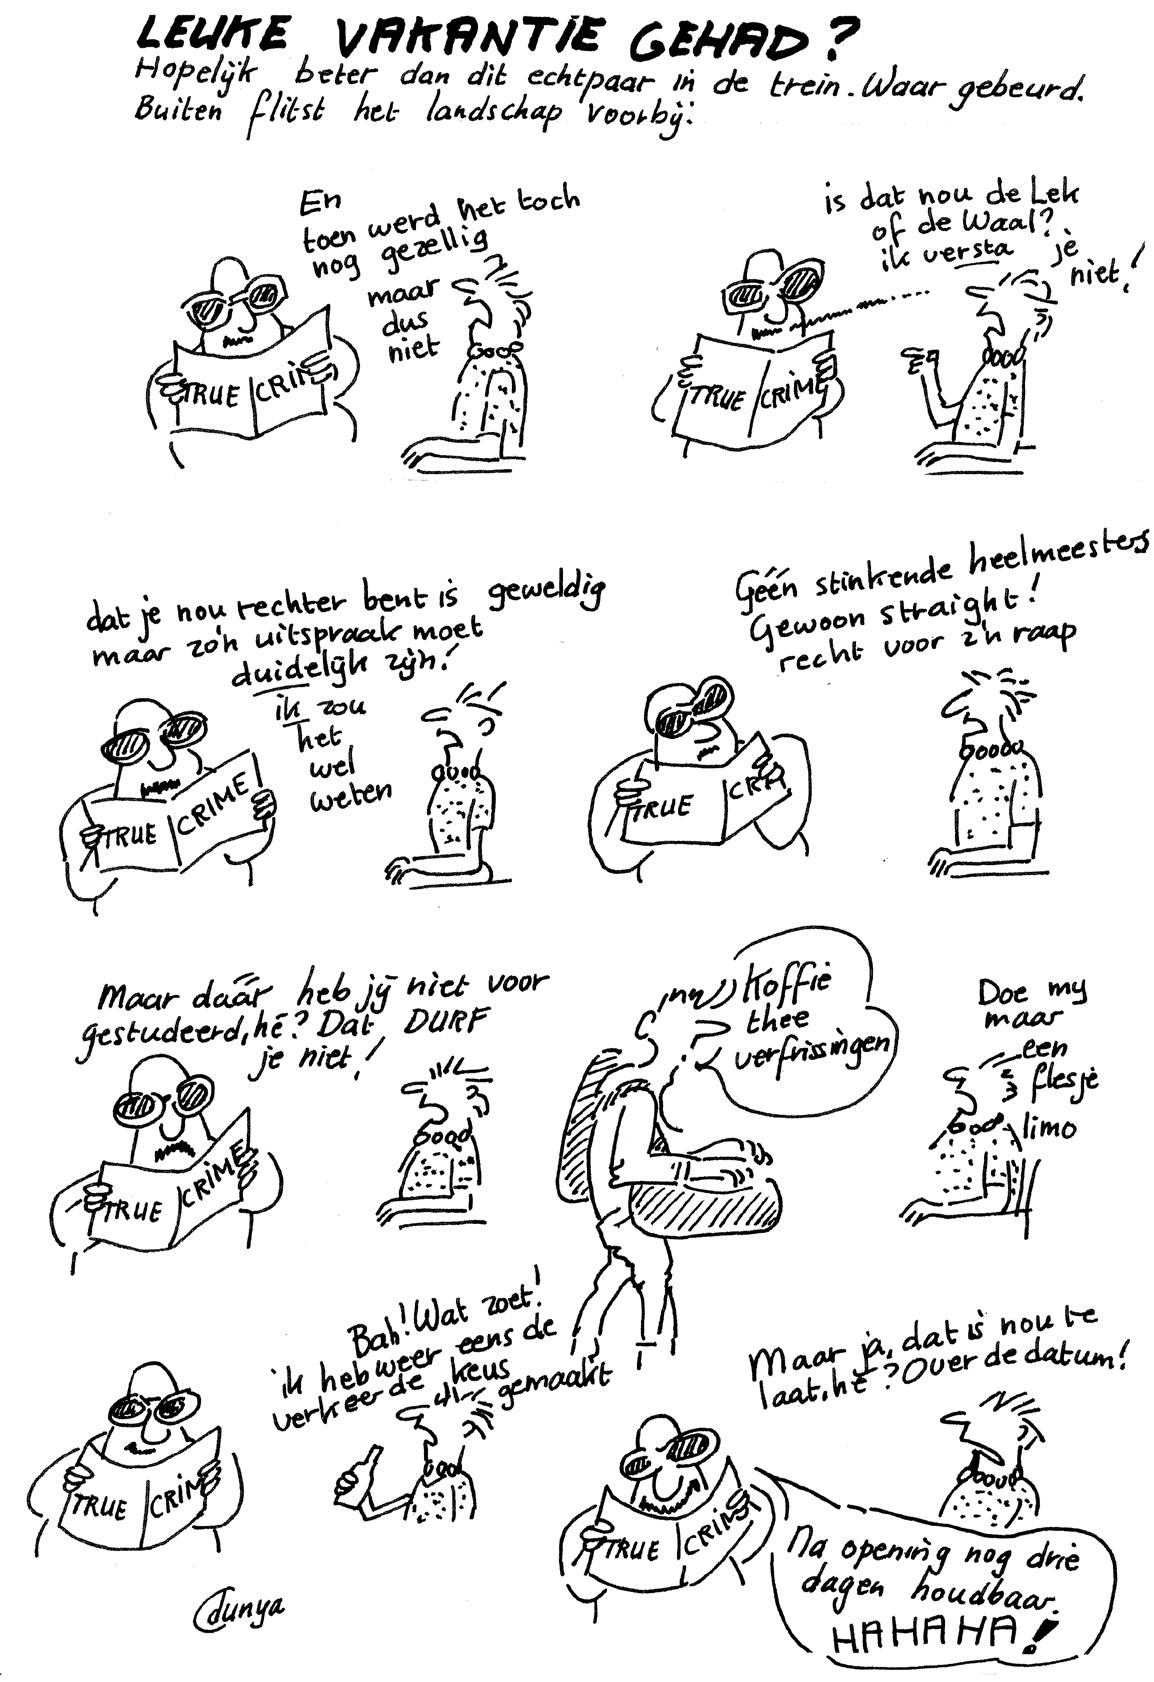 LEUKE VAKANTIE GEHAD?
Hopelijk beter dan dit echtpaar in de trein. Waar gebeurd.
Buiten flitst het landschap voorbij:
En
toen werd het toch
nog gezellig
maar
dus
niet
TRUE CRIM
is dat nou de Lek
of de Waal?
ik versta je
niet!
TRUE CRIME
dat je nou rechter bent is geweldig
maar zo'n uitspraak moet
duidelijk zijn!
ik zou
het
wel
weten
TRUE CRIME
Géén stinkende heelmeesters
Gewoon straight!
recht voor z'n raap
TRUE CRI
Maar dáár heb jij niet voor
gestudeerd, hè? Dat DURF
je niet!
TRUE CRIME
Koffie
thee
verfrissingen
Doe mij
maar
een
flesje
limo
Bah! Wat zoet!
ik heb weer eens de
verkeerde keus
gemaakt
TRUE CRIM
Maar ja, dat is nou te
laat, hè? Over de datum!
TRUE CRIME
Na opening nog drie
dagen houdbaar.
HAHAHA!
dunya